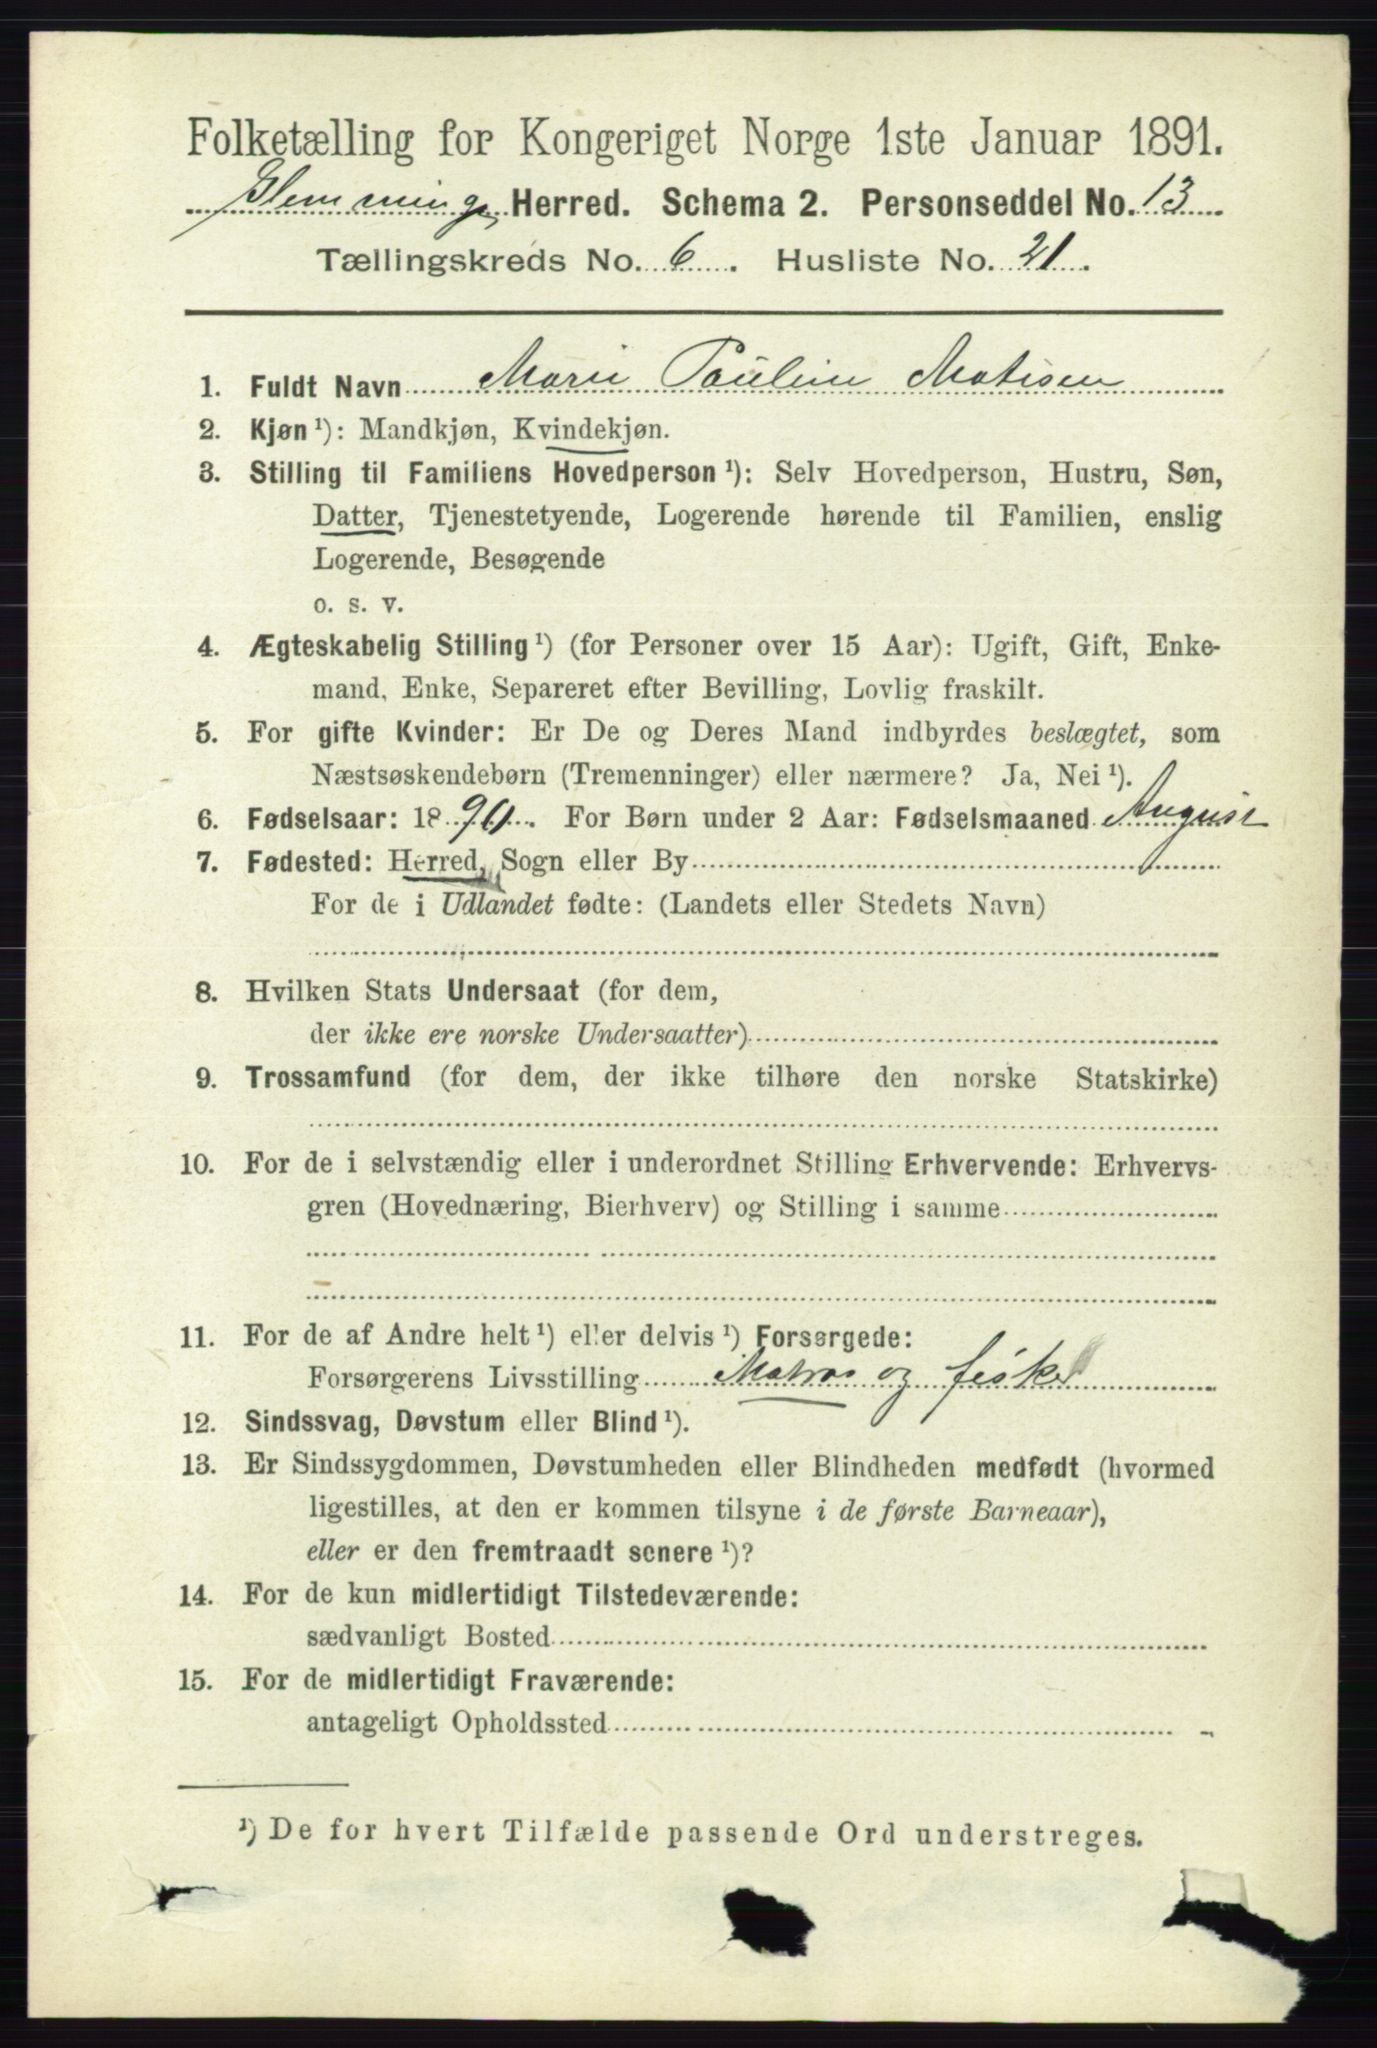 Folketælling for Kongeriget Norge 1ste Januar 1891.
Glemminge Herred. Schema 2. Personseddel No. 13
Tællingskreds No. 6. Husliste No. 21.
1. Fuldt Navn Marie Pauline Matisen
2. Kjøn ¹): Mandkjøn, Kvindekjøn.
3. Stilling til Familiens Hovedperson ¹): Selv Hovedperson, Hustru, Søn,
Datter, Tjenestetyende, Logerende hørende til Familien, enslig
Logerende, Besøgende
o. s. v.
4. Ægteskabelig Stilling ¹) (for Personer over 15 Aar): Ugift, Gift, Enke-
mand, Enke, Separeret efter Bevilling, Lovlig fraskilt.
5. For gifte Kvinder: Er De og Deres Mand indbyrdes beslægtet, som
Næstsøskendebørn (Tremenninger) eller nærmere? Ja, Nei ¹).
6. Fødselsaar: 1890. For Børn under 2 Aar: Fødselsmaaned August
7. Fødested: Herred, Sogn eller By
For de i Udlandet fødte: (Landets eller Stedets Navn)
8. Hvilken Stats Undersaat (for dem,
der ikke ere norske Undersaatter)
9. Trossamfund (for dem, der ikke tilhøre den norske Statskirke)
10. For de i selvstændig eller i underordnet Stilling Erhvervende: Erhvervs-
gren (Hovednæring, Bierhverv) og Stilling i samme
11. For de af Andre helt ¹) eller delvis ¹) Forsørgede:
Forsørgerens Livsstilling Matros og fisker
12. Sindssvag, Døvstum eller Blind ¹).
13. Er Sindssygdommen, Døvstumheden eller Blindheden medfødt (hvormed
ligestilles, at den er kommen tilsyne i de første Barneaar),
eller er den fremtraadt senere ¹)?
14. For de kun midlertidigt Tilstedeværende:
sædvanligt Bosted
15. For de midlertidigt Fraværende:
antageligt Opholdssted
¹) De for hvert Tilfælde passende Ord understreges.